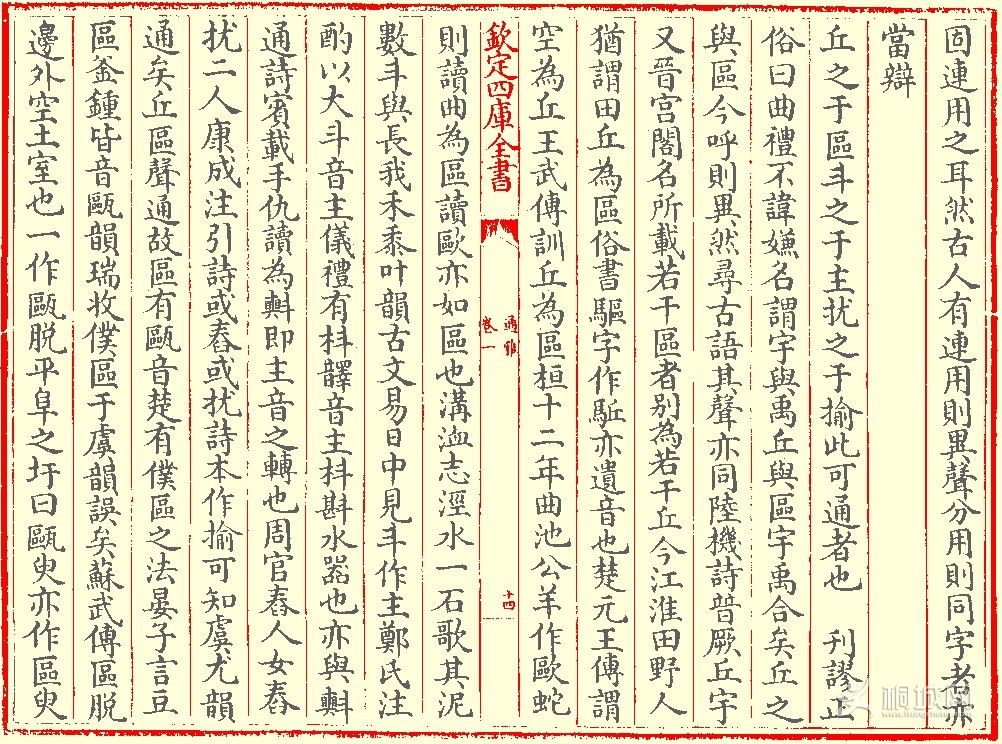 固連用之耳然古人有連用則異聲分用則同字者亦
當辯
丘之于區斗之于主扰之于揄此可通者也 刋謬正
俗曰曲禮不諱嫌名謂宇與禹丘與區宇禹合矣丘之
與區今呼則異然尋古語其聲亦同陸機詩普厥丘宇
又晉宫閣名所載若干區者别為若干丘今江淮田野人
猶謂田丘為區俗書驅字作駈亦遺音也楚元王傳謂
空為丘王武傳訓丘為區桓十二年曲池公羊作歐蛇
欽定四庫全書
通雅
卷一
十四
則讀曲為區讀歐亦如區也溝洫志涇水一石歌其泥
數斗與長我禾黍叶韻古文易日中見斗作主鄭氏注
酌以大斗音主儀禮有枓鐸音主枓斟水器也亦與㪺
通詩賓載手仇讀為㪺即主音之轉也周官舂人女舂
扰二人康成注引詩或舂或扰詩本作揄可知虞尤韻
通矣丘區聲通故區有甌音楚有僕區之法晏子言豆
區釡鍾皆音甌韻瑞收僕區于虞韻誤矣蘇武傳區脱
邊外空土室也一作甌脱平阜之圩曰甌臾亦作區臾
桐城网